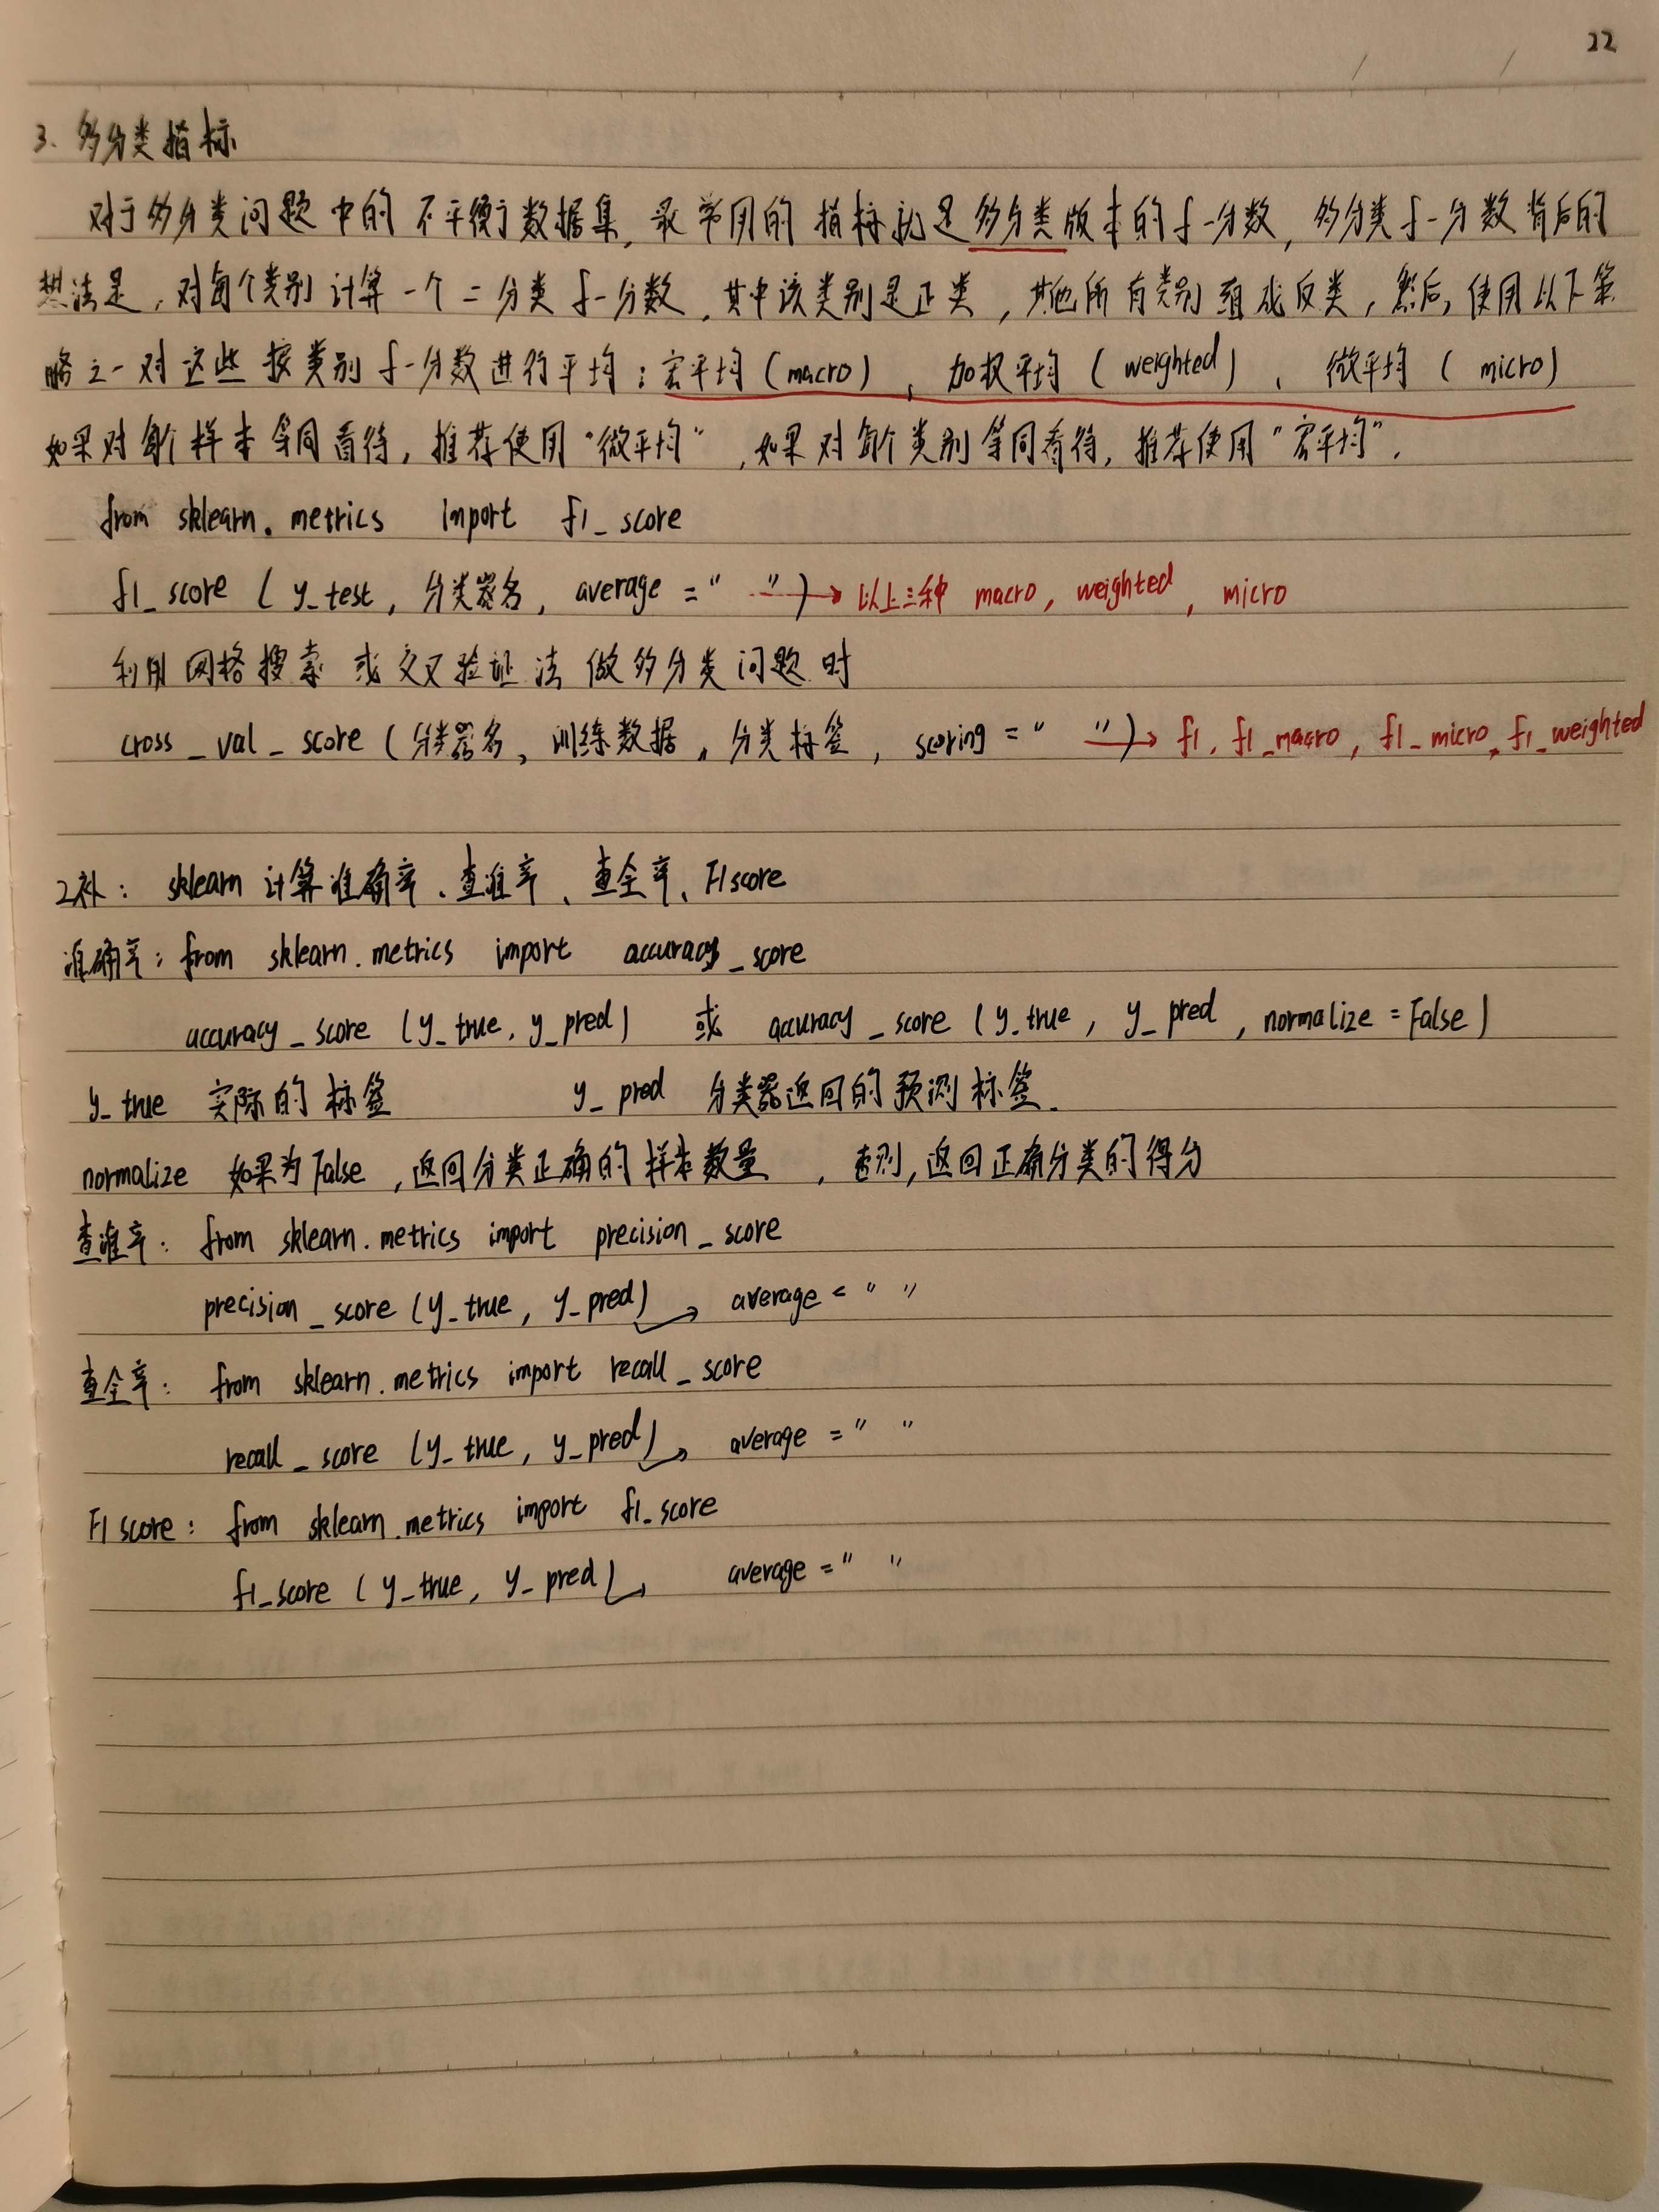 22
3. 多分类指标
对于多分类问题中的不平衡数据集, 最常用的指标就是多分类版本的f-分数, 多分类f-分数背后的
想法是, 对每个类别计算一个二分类f-分数, 其中该类别是正类, 其他所有类别组成反类, 然后, 使用以下策
略之一对这些按类别f-分数进行平均: 宏平均 (macro), 加权平均 (weighted), 微平均 (micro)
如果对每个样本等同看待, 推荐使用"微平均", 如果对每个类别等同看待, 推荐使用"宏平均".
from sklearn.metrics import f1_score
f1_score (y_test, 分类器名, average = " ") → 以上三种 macro, weighted, micro
利用网格搜索或交叉验证法做多分类问题时
cross_val_score (分类器名, 训练数据, 分类标签, scoring = " ") → f1, f1_macro, f1_micro, f1_weighted
2补: sklearn 计算准确率、查准率、查全率、F1score
准确率: from sklearn.metrics import accuracy_score
accuracy_score (y_true, y_pred) 或 accuracy_score (y_true, y_pred, normalize = False)
y_true 实际的标签 y_pred 分类器返回的预测标签.
normalize 如果为False, 返回分类正确的样本数量, 否则, 返回正确分类的得分
查准率: from sklearn.metrics import precision_score
precision_score (y_true, y_pred) → average = " "
查全率: from sklearn.metrics import recall_score
recall_score (y_true, y_pred) → average = " "
F1 score: from sklearn.metrics import f1_score
f1_score (y_true, y_pred) → average = " "